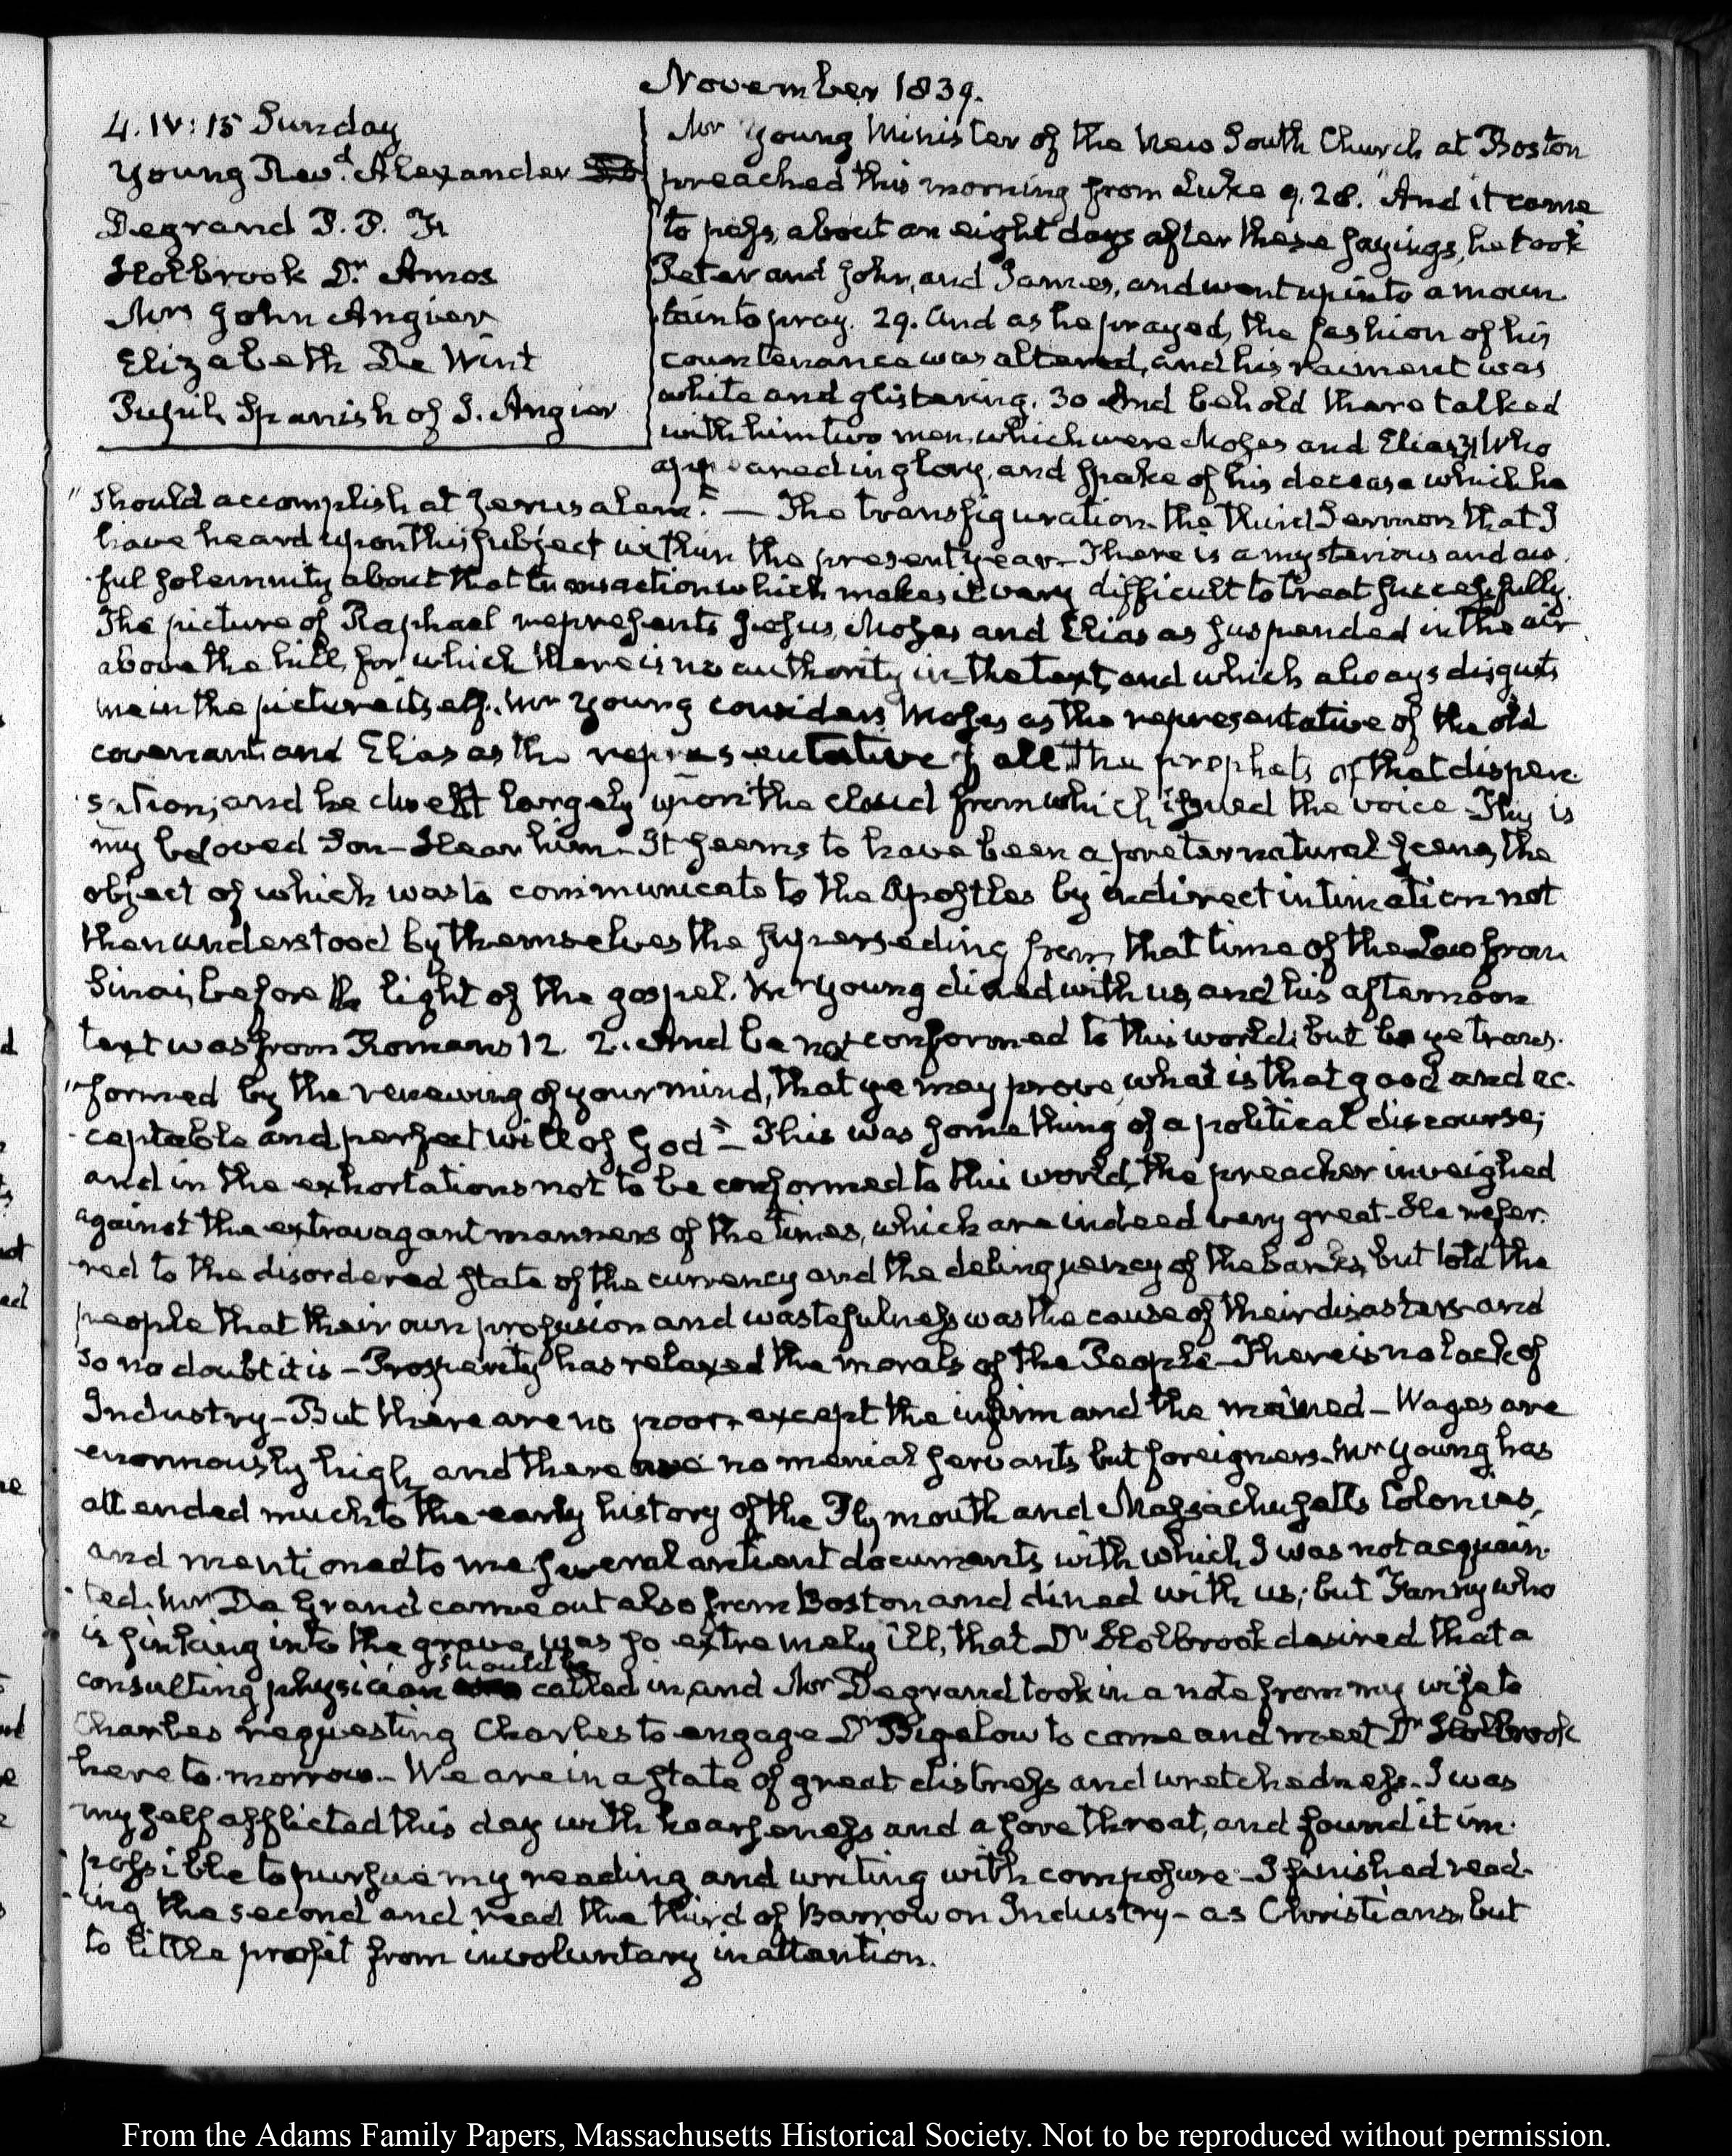 November 1839.
4. IV:15 Sunday
Young Revd. Alexander
Degrand P. P. F.
Holbrook Dr Amos
Mrs John Angier
Elizabeth De Wint
Pupils Spanish of J. Angier
Mr Young Minister of the New South Church at Boston
preached this morning from Luke 9. 28. "And it came
to pass, about an eight days after these sayings, he took
Peter and John, and James, and went up into a moun-
tain to pray. 29. And as he prayed, the fashion of his
countenance was altered, and his raiment was
white and glistering. 30 And behold there talked
with him two men, which were Moses and Elias; 31 Who
appeared in glory, and spake of his decease which he
"should accomplish at Jerusalem." — The transfiguration. the third Sermon that I
have heard upon this subject within the present year. There is a mysterious and aw-
ful solemnity about that transaction which makes it very difficult to treat successfully.
The picture of Raphael represents Jesus, Moses and Elias as suspended in the air
above the hill, for which there is no authority in the text, and which always disgusts
me in the picture itself. Mr Young considers Moses as the representative of the old
covenant and Elias as the representative of all the prophets of that dispen-
sation; and he dwelt largely upon the cloud from which issued the voice This is
my beloved Son — Hear him. It seems to have been a preternatural scene, the
object of which was to communicate to the Apostles by indirect intimation not
then understood by themselves the superseding from that time of the Law from
Sinai, before the light of the gospel. Mr Young dined with us, and his afternoon
text was from Romans 12. 2. And be not conformed to this world: but be ye trans-
"formed by the renewing of your mind, that ye may prove, what is that good and ac-
ceptable and perfect will of God" — This was something of a political discourse;
and in the exhortations not to be conformed to this world, the preacher inveighed
against the extravagant manners of the times, which are indeed very great — He refer-
red to the disordered state of the currency and the delinquency of the banks, but told the
people that their own profusion and wastefulness was the cause of their disasters and
so no doubt it is — Prosperity has relaxed the morals of the People — There is no lack of
Industry — But there are no poor, except the infirm and the maimed — Wages are
enormously high, and there are no menial servants but foreigners. Mr Young has
attended much to the early history of the Plymouth and Massachusetts Colonies,
and mentioned to me several antient documents with which I was not acquain-
ted. Mr De Grand came out also from Boston and dined with us; but Fanny who
is sinking into the grave, was so extremely ill, that Dr Holbrook desired that a
consulting physician should be called in, and Mr Degrand took in a note from my wife to
Charles requesting Charles to engage Dr Bigelow to come and meet Dr Holbrook
here to-morrow. — We are in a state of great distress and wretchedness. I was
myself afflicted this day with hoarseness and a sore throat, and found it im-
possible to pursue my reading and writing with composure — I finished read-
ing the second and read the third of Barrow on Industry — as Christians, but
to little profit from involuntary inattention.
From the Adams Family Papers, Massachusetts Historical Society. Not to be reproduced without permission.